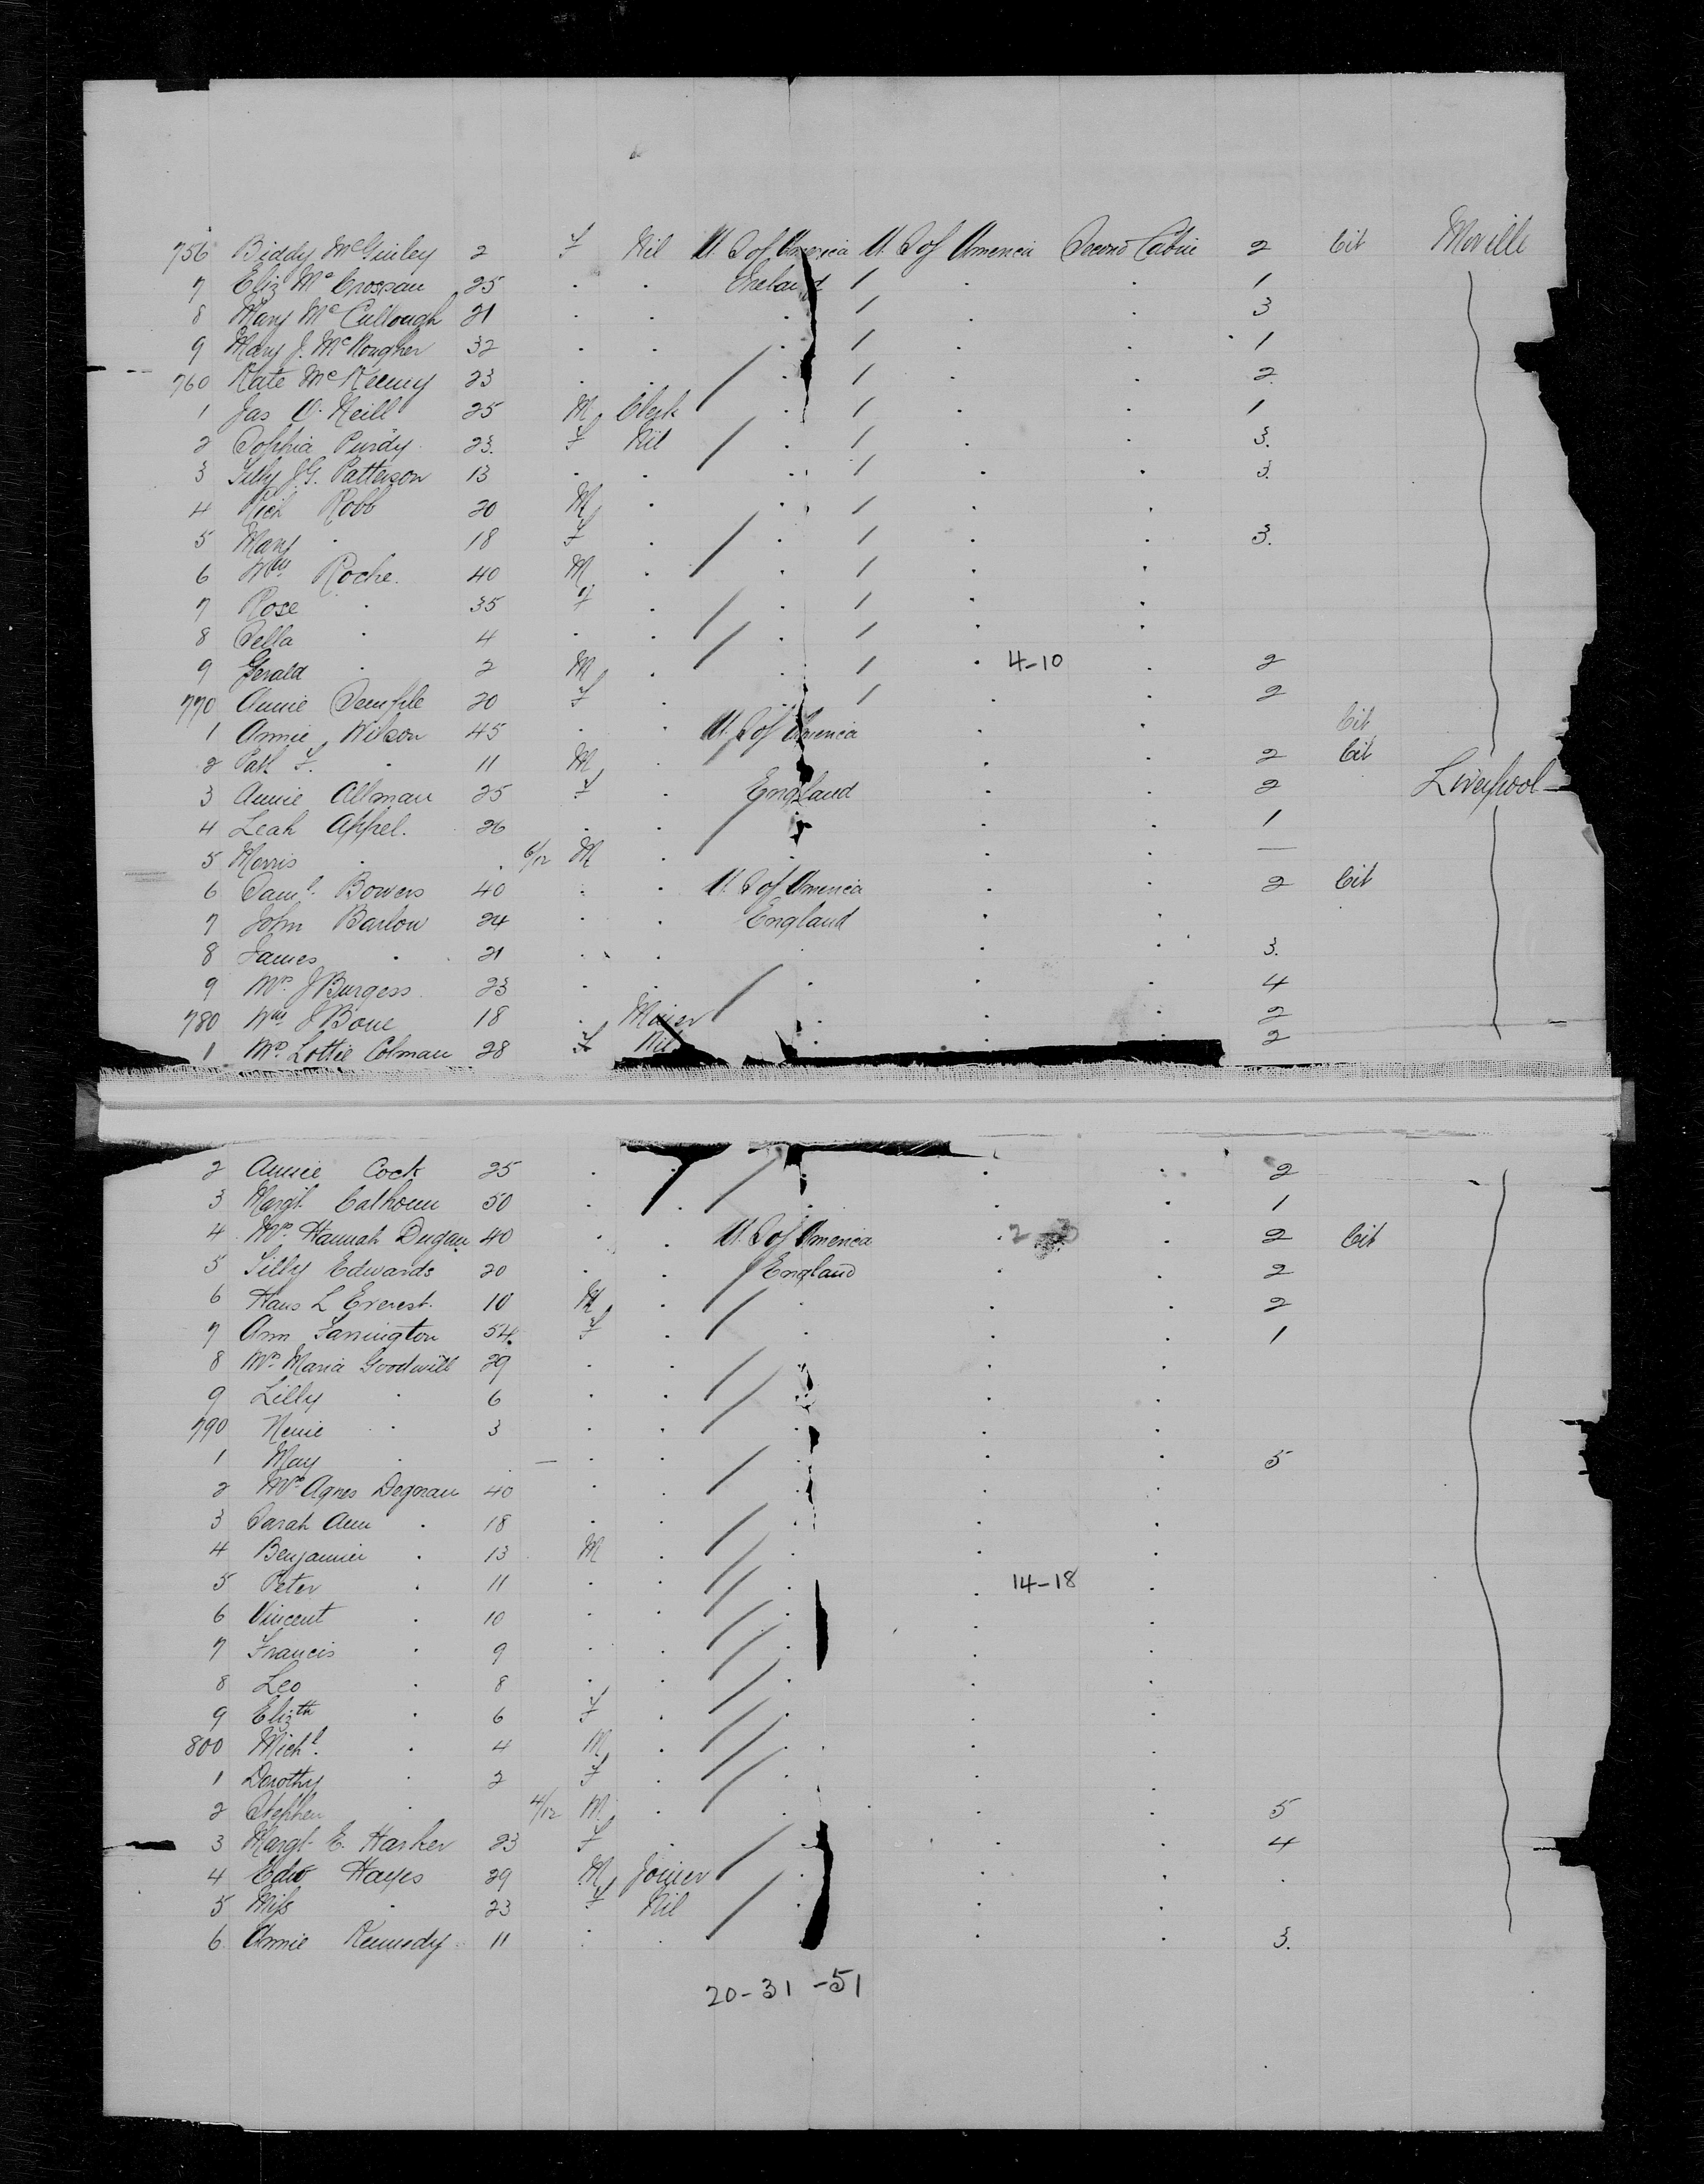 756 Biddy McGinley 2 F Nil U. S of America U. S of America Second Cabin 2 Cit Moville
7 Eliz McCrossan 25 . . Ireland / . . 1
8 Mary McCullough 21 . . . / . . 3
9 Mary J. McKougher 32 . . . / . . 1
760 Kate McKeeny 23 . . . / . . 2
1 Jas O'Neill 25 M Clerk . / . . 1
2 Sophia Purdy 23 F Nil . / . . 3
3 Tilly J.G. Patterson 13 . . . / . . 3
4 Rich Robb 20 M . . / . .
5 Mary . 18 F . . / . . 3
6 Wm Roche 40 M . . / . .
7 Rose . 35 F . . / . .
8 Sella . 4 . . . / . .
9 Gerald . 2 M . . / . 4-10 . 2
770 Annie Semple 20 F . . / . . 2
1 Annie Wilson 45 . . U. S of America . . Cit
2 Path F. . 11 M . . . . 2 Cit
3 Annie Allman 25 F . England . . 2 Liverpool
4 Leah Appel. 26 . . . . . 1
5 Morris . . 6/12 M . . . . —
6 Saml. Bowers 40 . . U. S of America . . 2 Cit
7 John Barlow 24 . . England . .
8 James . 21 . . . . . 3
9 Mrs J Burgess 23 . . . . . 4
780 Wm J Bone 18 . Miner . . . 2
1 Mrs Lottie Colman 28 F Nil . . . 2
2 Annie Cock 25 . . . . . 2
3 Margt Calhoun 50 . . . . . 1
4 Mrs Hannah Dugan 40 . . U. S of America . . 2 Cit
5 Lilly Edwards 20 . . England . . 2
6 Hans L Everest 10 M . . . . 2
7 Ann Farrington 54 F . . . . 1
8 Mrs Maria Goodwill 29 . . . . .
9 Lilly . 6 . . . . .
790 Nenie . 3 . . . . .
1 May . . — . . . . . 5
2 Mrs Agnes Degnan 40 . . . . .
3 Sarah Ann . 18 . . . . .
4 Benjamin . 13 M . . . .
5 Peter . 11 . . . . 14-18 .
6 Vincent . 10 . . . . .
7 Francis . 9 . . . . .
8 Leo . 8 . . . . .
9 Elizth . 6 F . . . .
800 Michl. . 4 M . . . .
1 Dorothy . 2 F . . . .
2 Stephen . 4/12 M . . . . 5
3 Margt E. Harker 23 F . . . . 4
4 Edw Hayes 29 M Joiner . . . .
5 Miss . 23 F Nil . . .
6 Annie Kennedy 11 . . . . . 3.
20-31-51